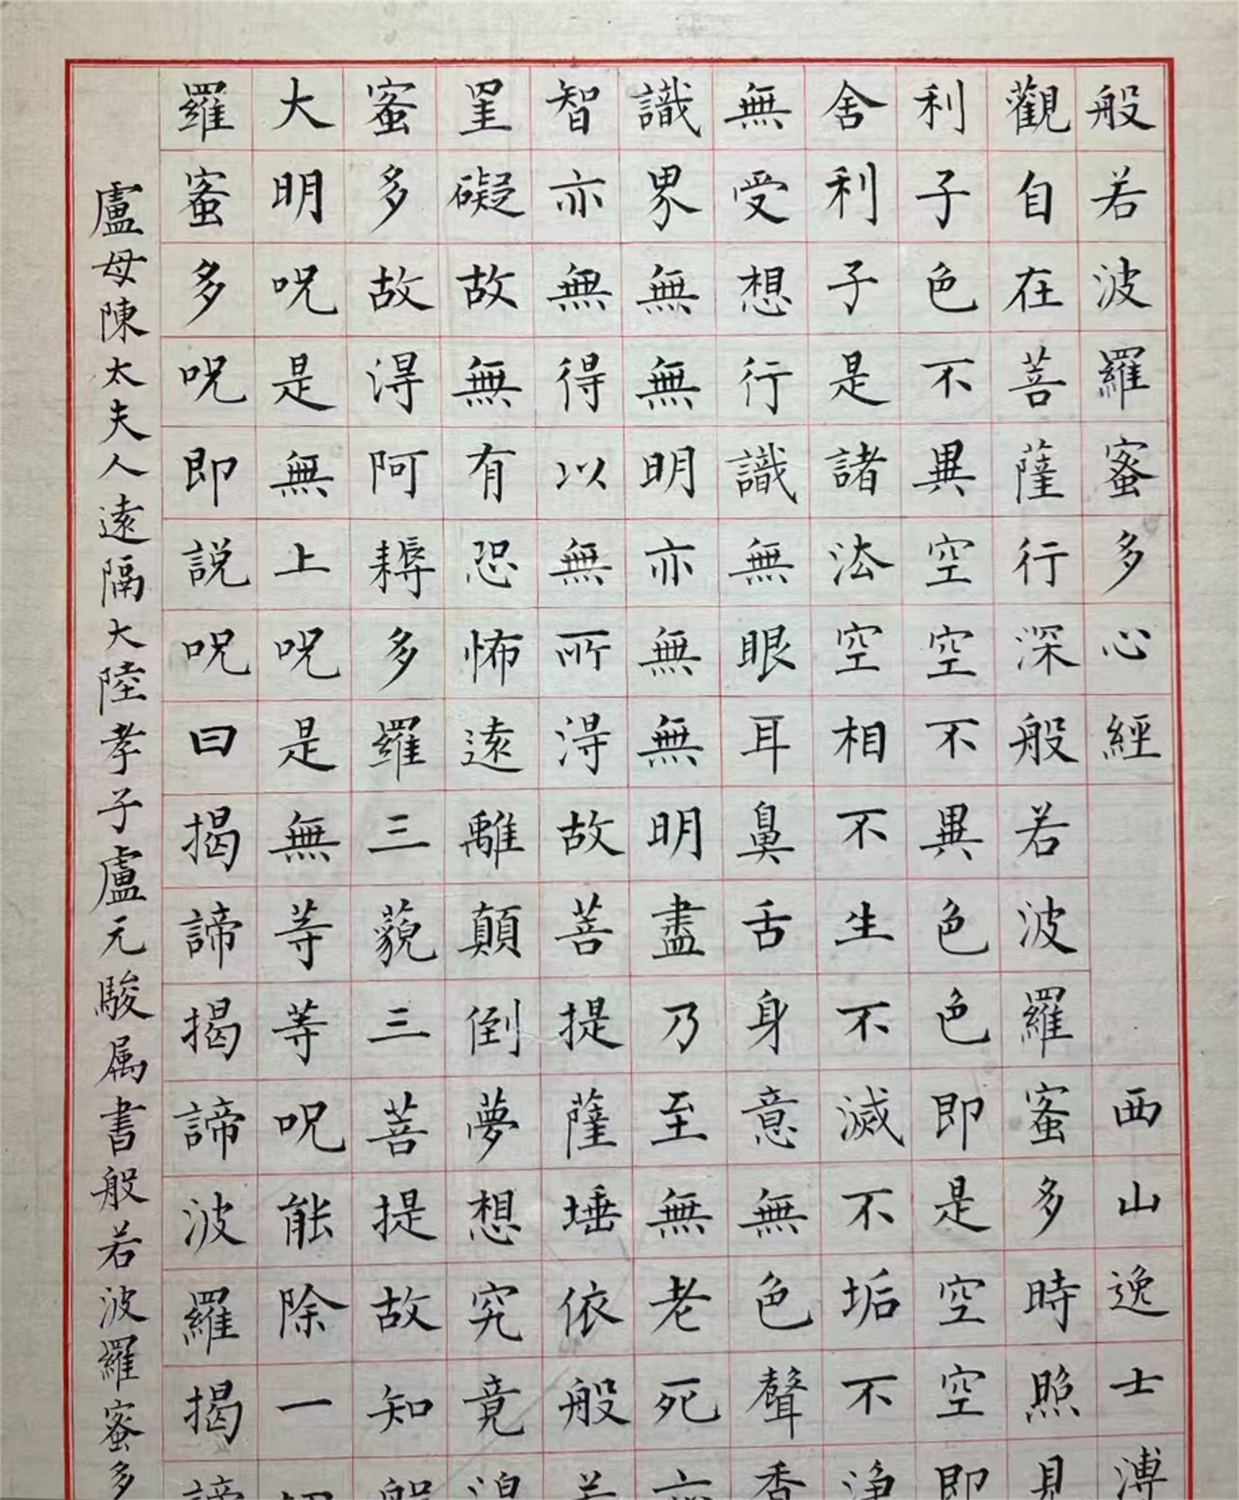 般若波羅蜜多心經 西山逸士溥
觀自在菩薩行深般若波羅蜜多時照見
利子色不異空空不異色色即是空空即
舍利子是諸法空相不生不滅不垢不淨
無受想行識無眼耳鼻舌身意無色聲香
識界無無明亦無無明盡乃至無老死亦
智亦無得以無所得故菩提薩埵依般若
罣礙故無有恐怖遠離顛倒夢想究竟涅
蜜多故得阿耨多羅三藐三菩提故知般
大明呪是無上呪是無等等呪能除一切
羅蜜多呪即說呪曰揭諦揭諦波羅揭諦
盧母陳太夫人遠隔大陸孝子盧元駿属書般若波羅蜜多